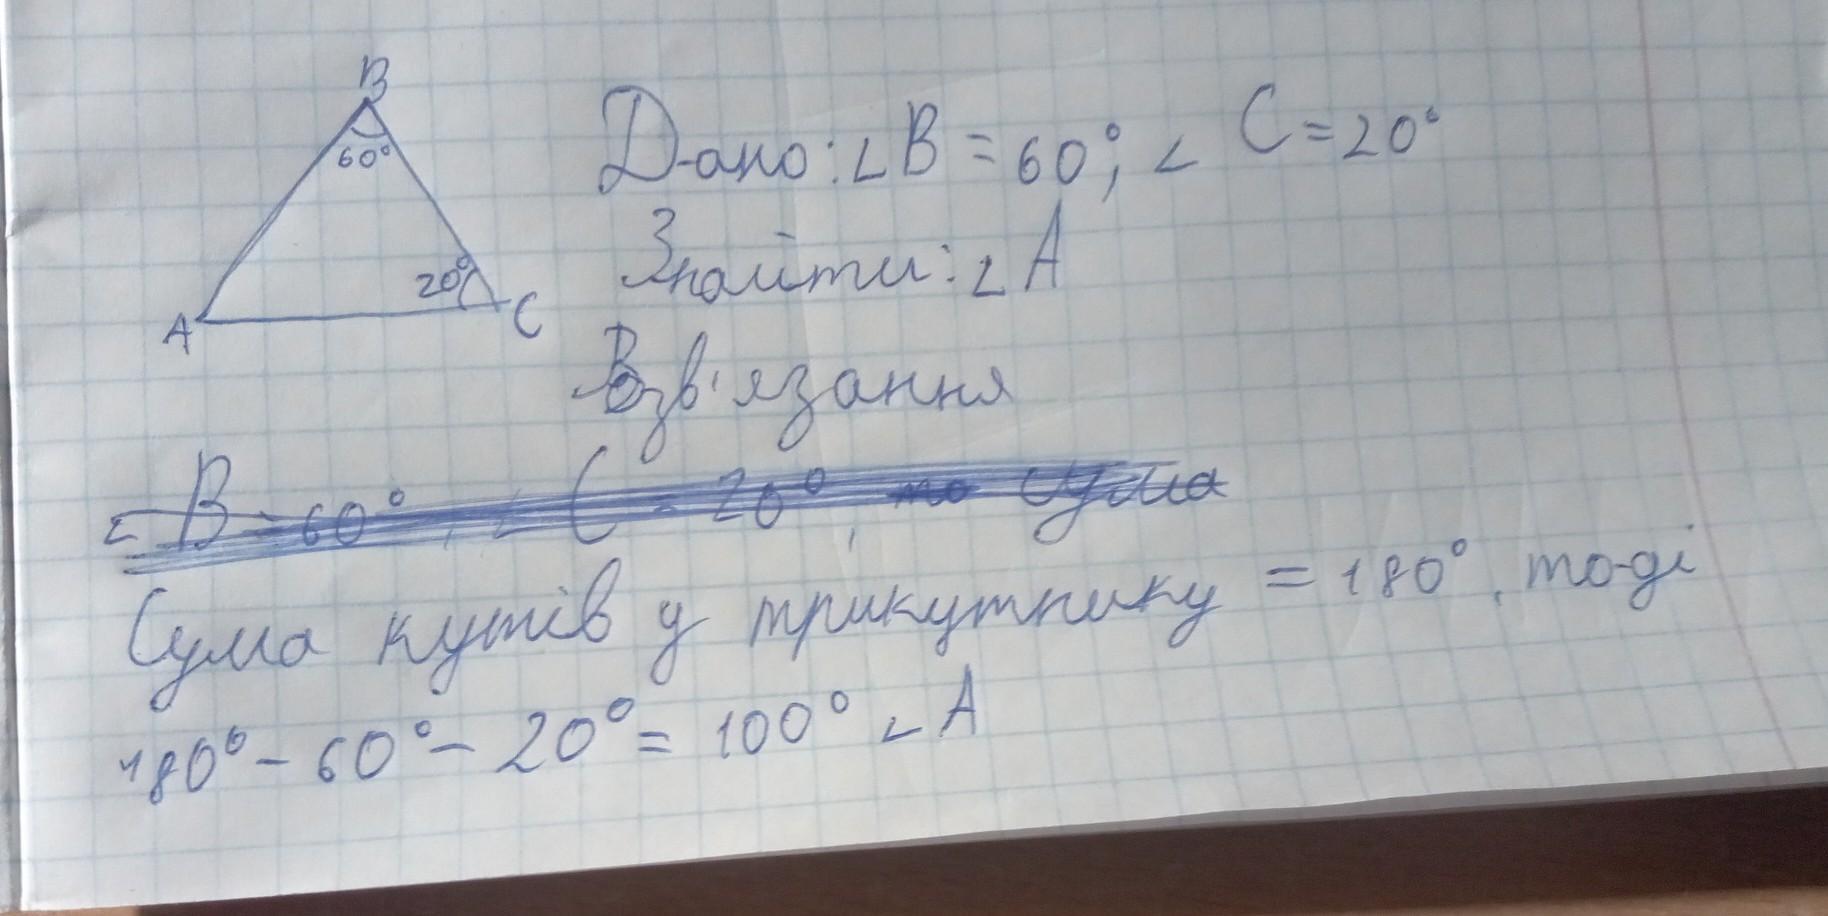 B
60°
20°
A
C
Дано: ∠B = 60°; ∠ C = 20°
Знайти: ∠A
Розв'язання
∠ B = 60°, ∠ C = 20°, то сума
Сума кутів у трикутнику = 180°, тоді
180° - 60° - 20° = 100° ∠A